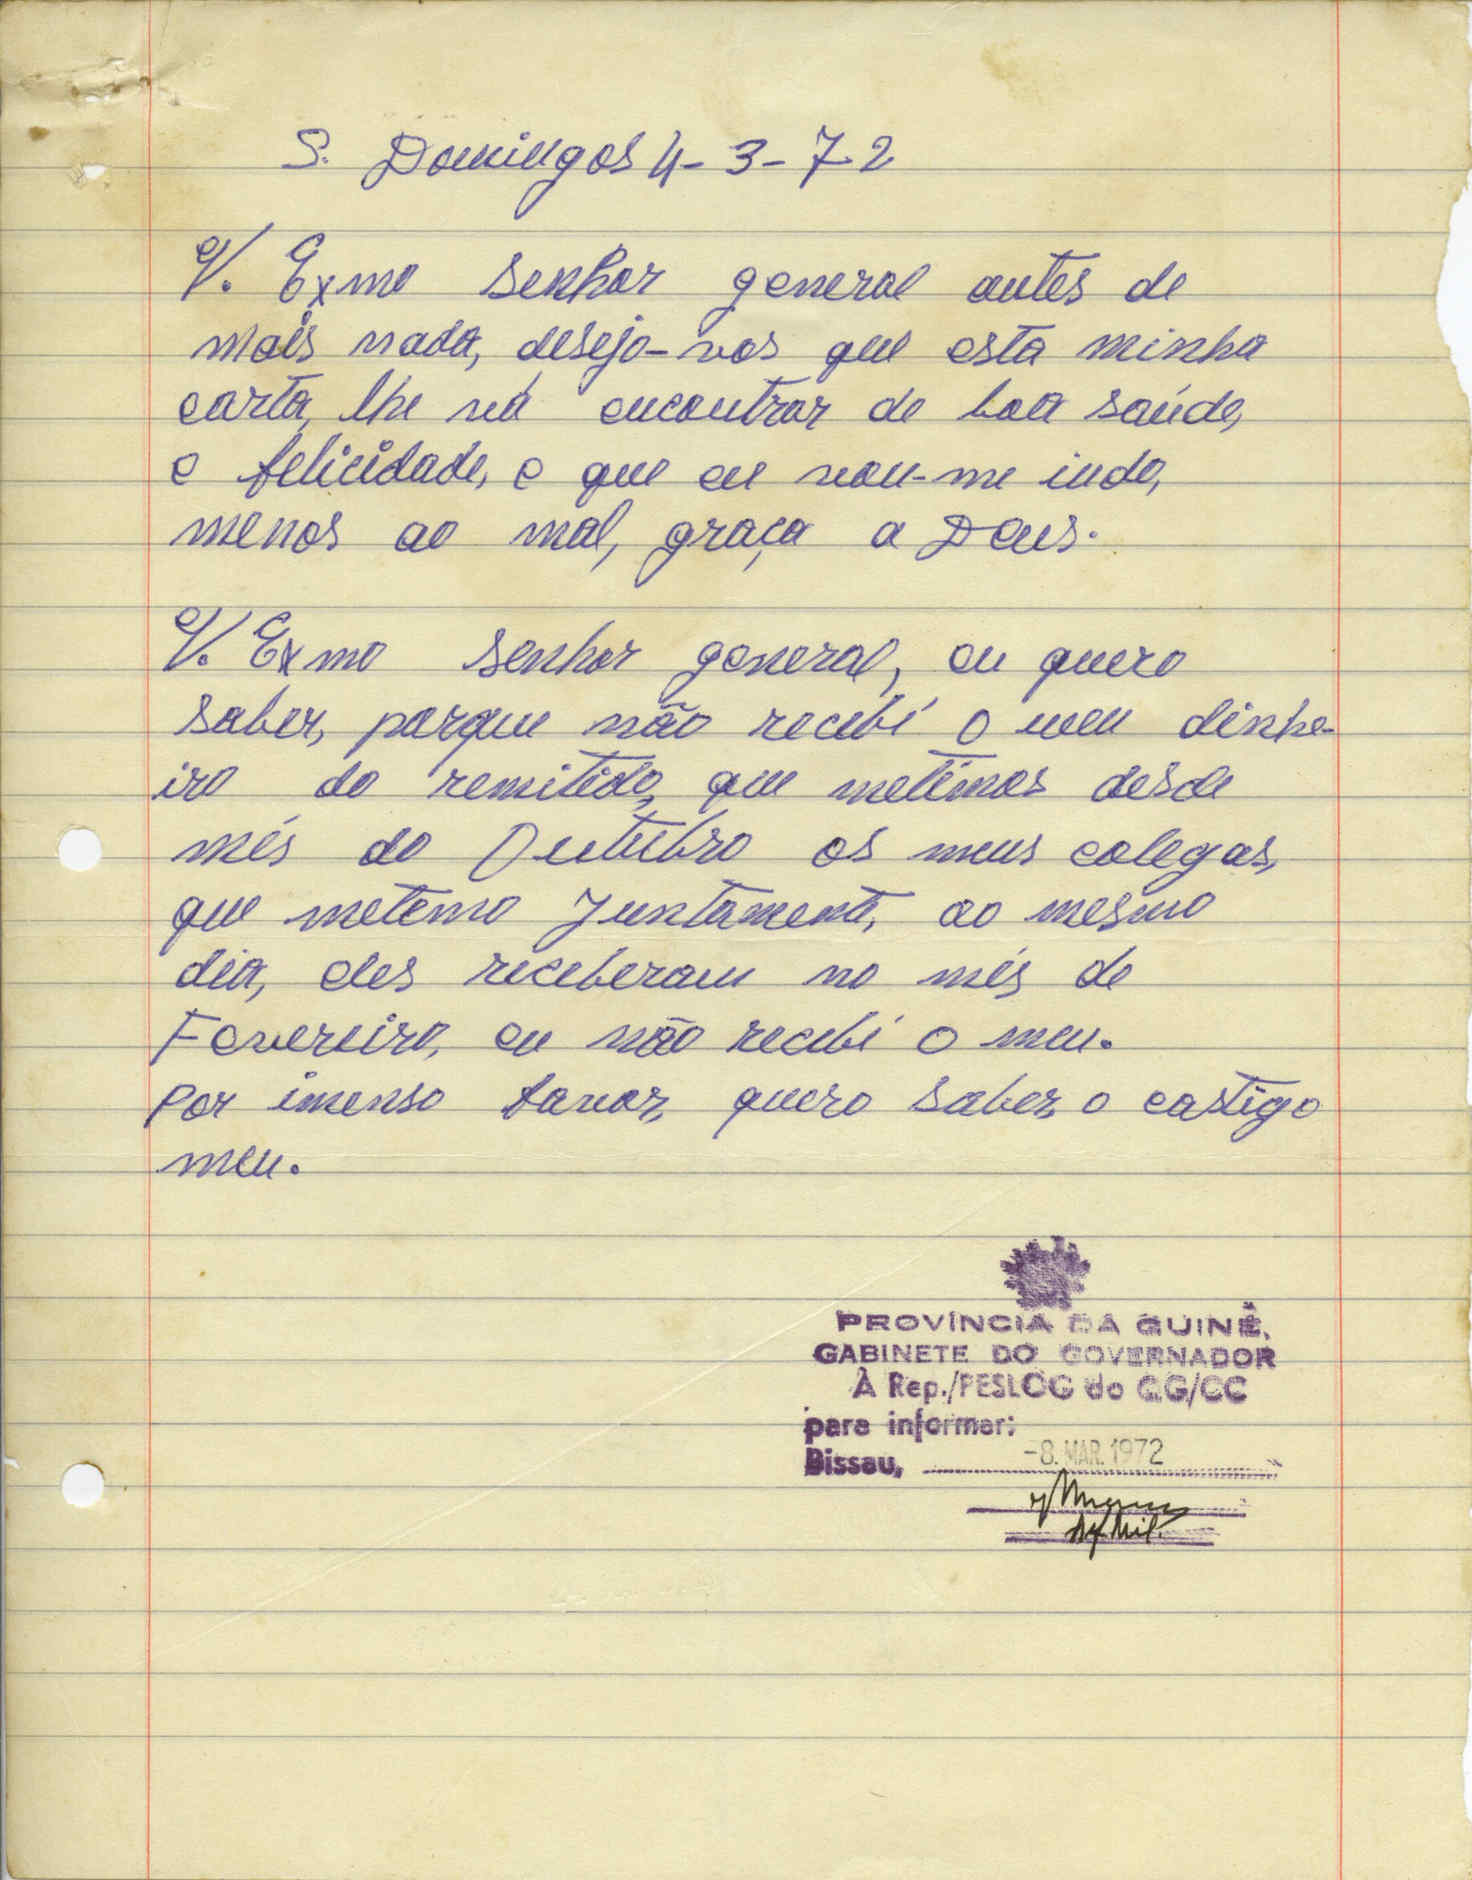 S. Domingos 4-3-72
V. Exmo Senhor general antes de
mais nada, desejo-vos que esta minha
carta, lhe vá encontrar de boa saúde,
e felicidade, e que eu vou-me indo,
menos ao mal, graça a Deus.
V. Exmo Senhor general, eu quero
saber, porque não recebí o meu dinhe-
iro do remitido, que metimos desde
mês do Outubro os meus colegas,
que metemo juntamente, ao mesmo
dia, eles receberam no mês de
Fevereiro, eu não recebí o meu.
Por imenso favor, quero saber o castigo
meu.
PROVÍNCIA DA GUINÉ.
GABINETE DO GOVERNADOR
À Rep./PESLOG do QG/CC
para informar:
Bissau, -8. MAR. 1972